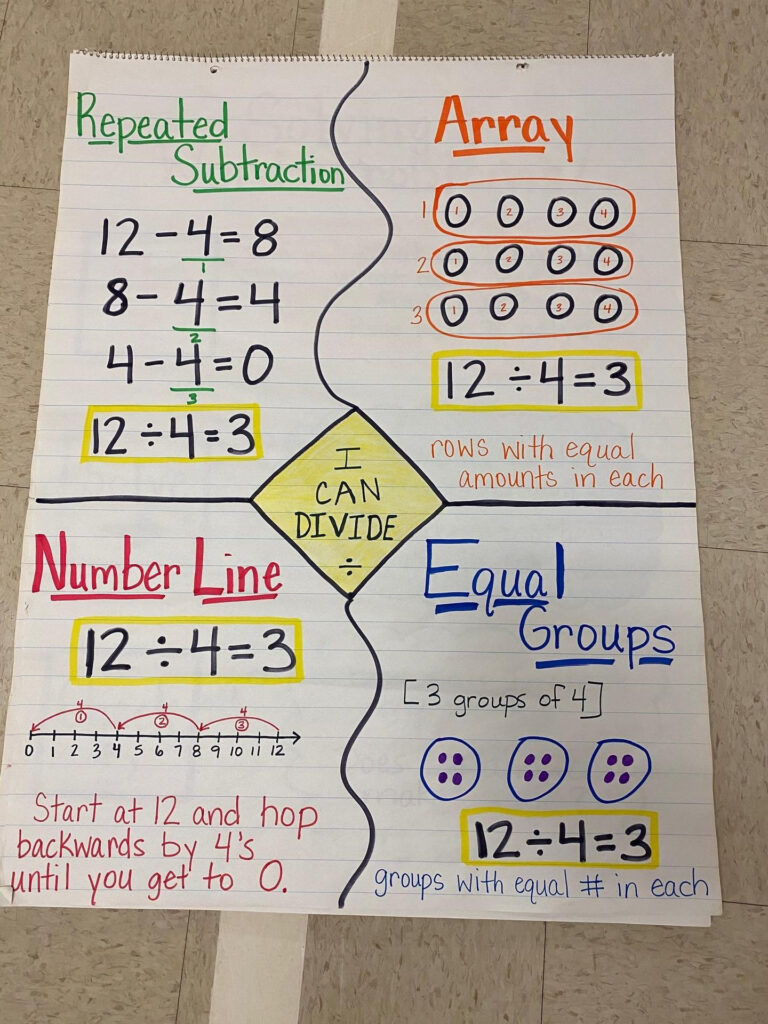 Repeated
Subtraction
12 - 4 = 8
1
8 - 4 = 4
2
4 - 4 = 0
3
12 ÷ 4 = 3
Array
1 1 2 3 4
2 1 2 3 4
3 1 2 3 4
12 ÷ 4 = 3
rows with equal
amounts in each
I
CAN
DIVIDE
÷
Number Line
12 ÷ 4 = 3
4 4 4
1 2 3
0 1 2 3 4 5 6 7 8 9 10 11 12
Start at 12 and hop
backwards by 4's
until you get to 0.
Equal
Groups
[3 groups of 4]
12 ÷ 4 = 3
groups with equal # in each